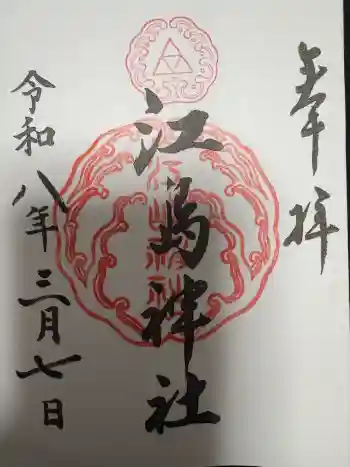 奉拝
江島神社
令和八年三月七日